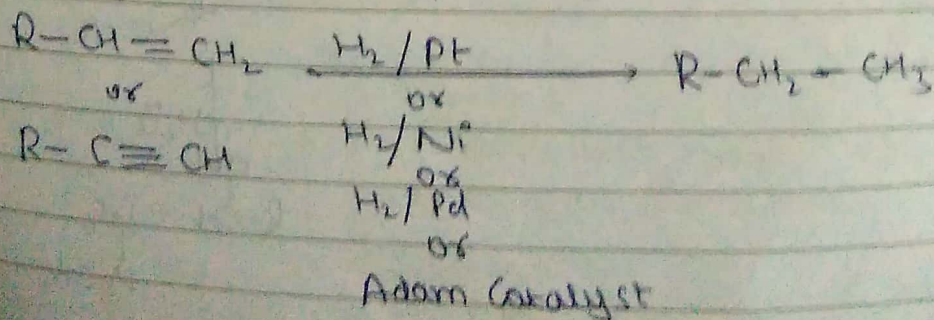 R-CH=CH₂ H₂/Pt → R-CH₂-CH₃
or or
R-C≡CH H₂/Ni
or
H₂/Pd
or
Adam Catalyst